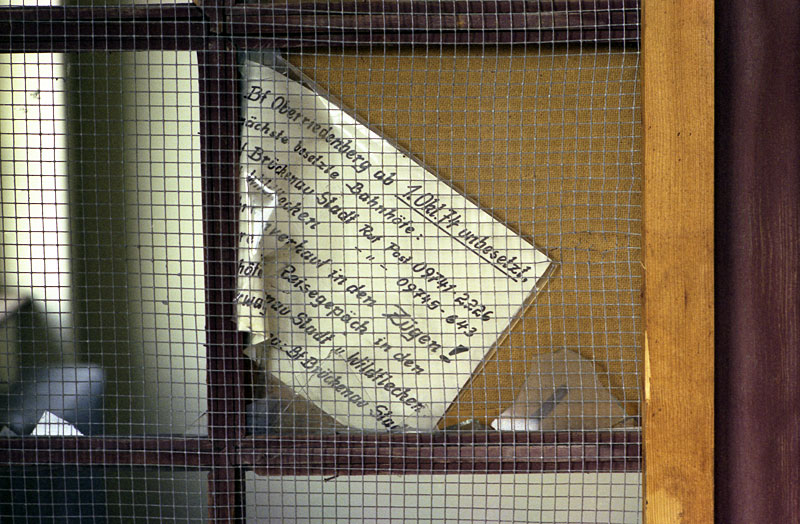 Bf Oberriedenberg ab 1.Okt.74 unbesetzt,
ächste besetzte Bahnhöfe:
Brückenau Stadt Ruf Post 09741-2226
lecken -"- 09745-643
verkauf in den Zügen!
Reisegepäck in den
nau Stadt u. Wildflecken
Bf. Brückenau Sta